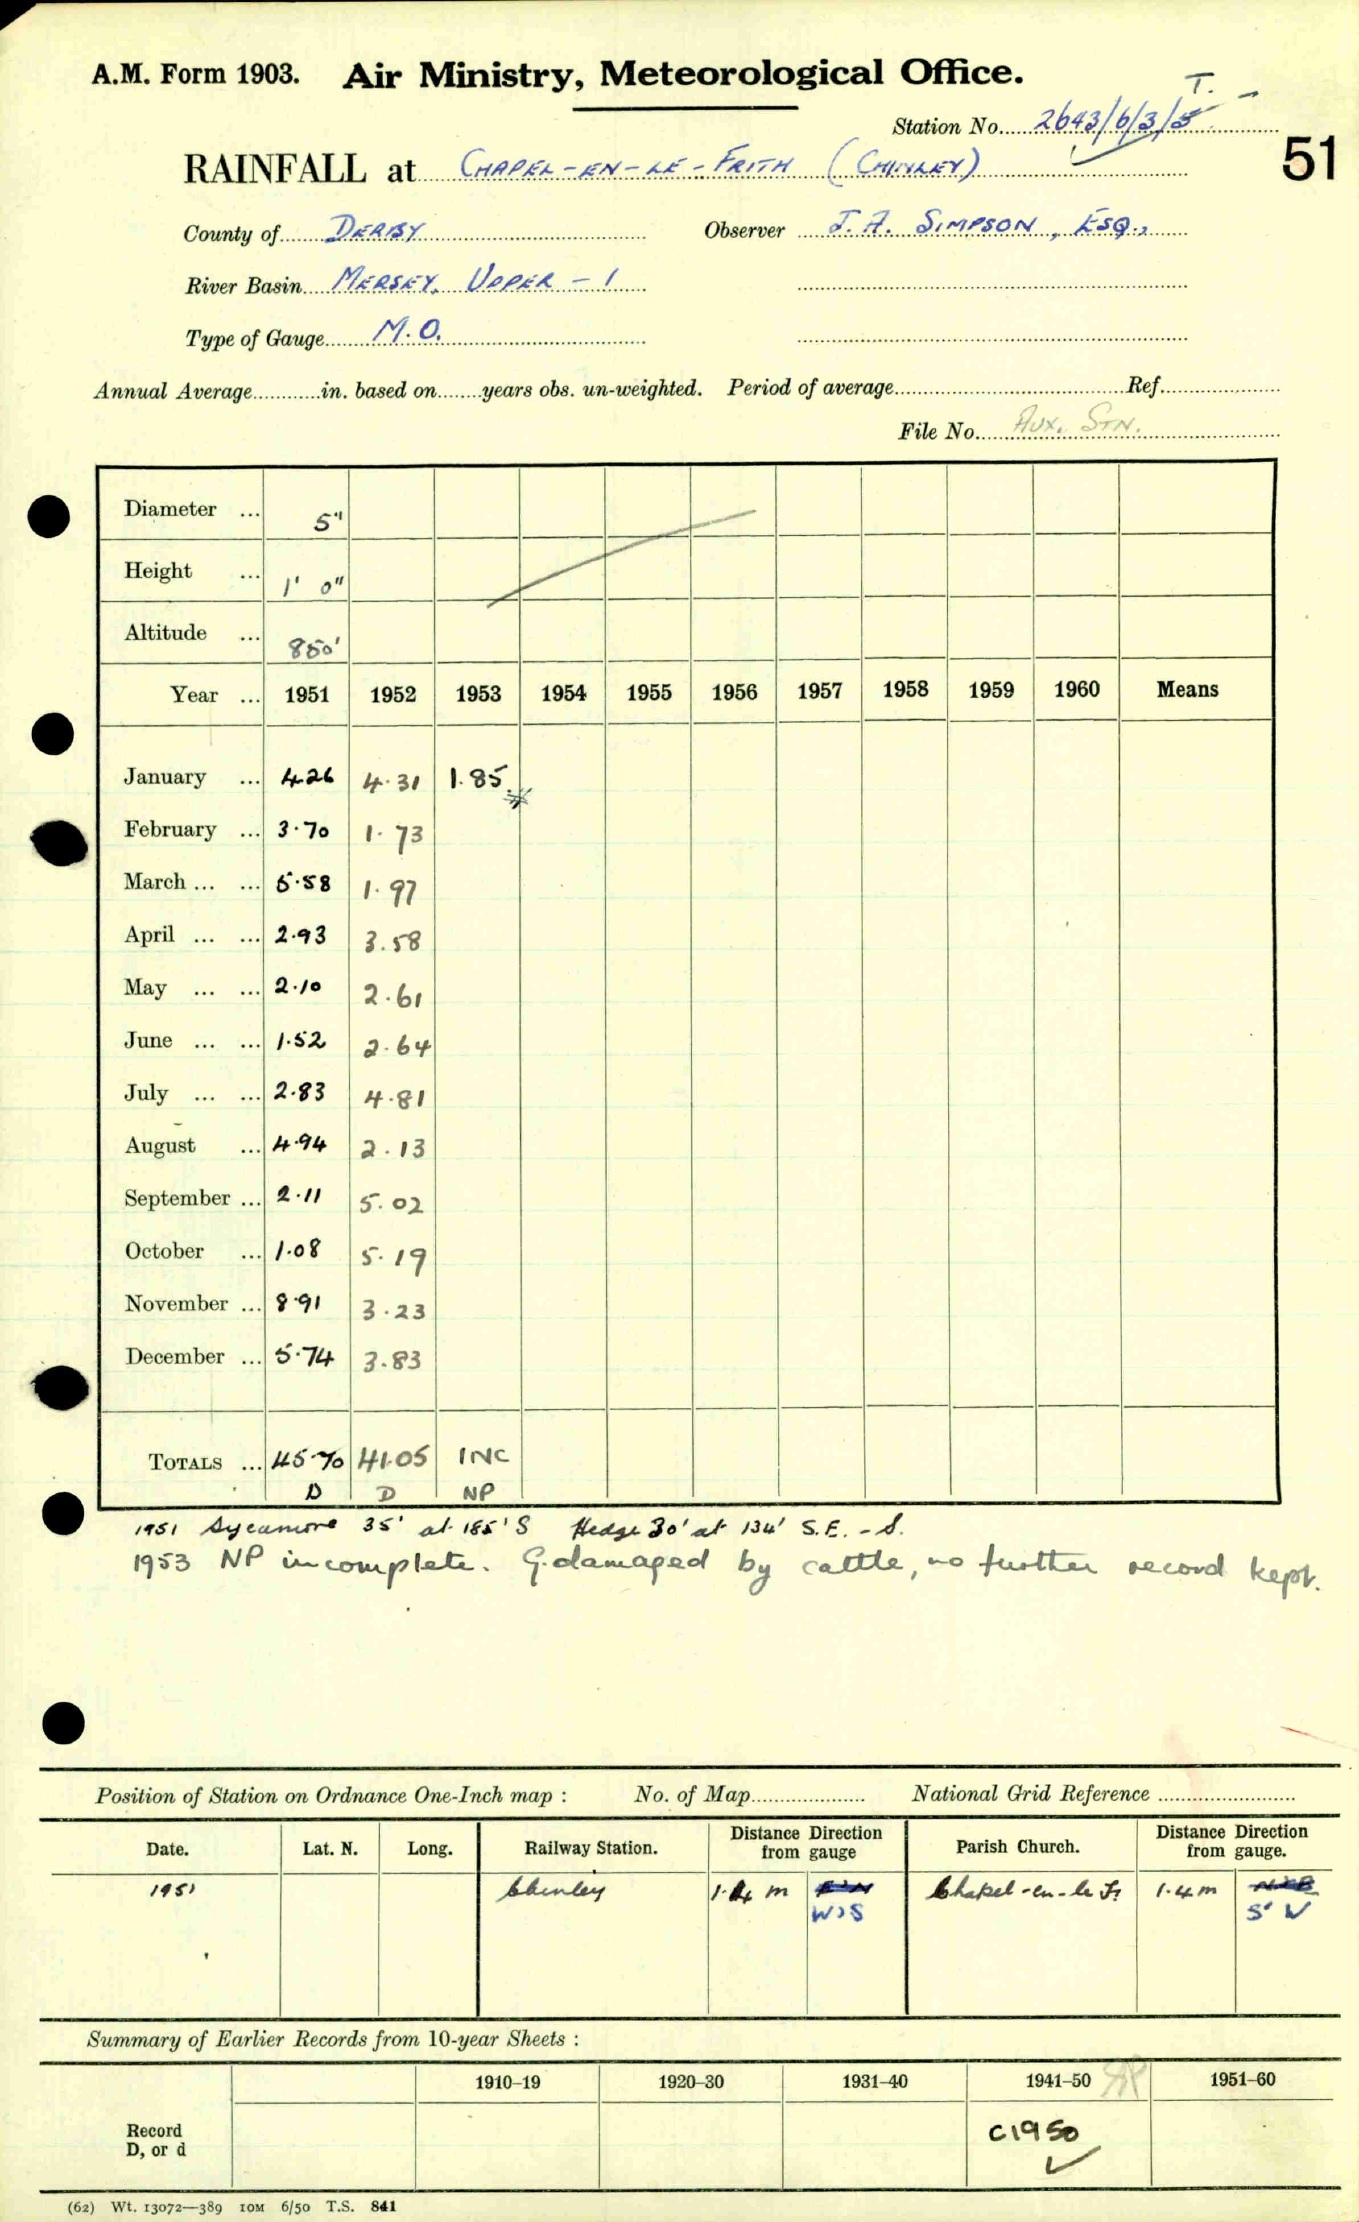 A.M. Form 1903. Air Ministry, Meteorological Office.
T.
Station No. 2643/6/3/5
RAINFALL at CHAPEL-EN-LE-FRITH (CHINLEY) 51
County of DERBY Observer J. A. SIMPSON, ESQ.,
River Basin MERSEY, UPPER - 1
Type of Gauge M.O.
Annual Average in. based on years obs. un-weighted. Period of average Ref.
File No. AUX. STN.
Diameter ... 5"
Height ... 1' 0"
Altitude ... 850'
Year ... 1951 1952 1953 1954 1955 1956 1957 1958 1959 1960 Means
January ... 4.26 4.31 1.85
February ... 3.70 1.73
March ... ... 5.58 1.97
April ... ... 2.93 3.58
May ... ... 2.10 2.61
June ... ... 1.52 2.64
July ... ... 2.83 4.81
August ... 4.94 2.13
September ... 2.11 5.02
October ... 1.08 5.19
November ... 8.91 3.23
December ... 5.74 3.83
TOTALS ... 45.70 41.05 INC
D D NP
1951 Sycamore 35' at 185' S Hedge 30' at 134' S.E. - S.
1953 NP incomplete. G. damaged by cattle, no further record kept.
Position of Station on Ordnance One-Inch map : No. of Map National Grid Reference
Date. Lat. N. Long. Railway Station. Distance Direction from gauge Parish Church. Distance Direction from gauge.
1951 Chinley 1.4 m Chapel-en-le Fr 1.4 m
W'S S'W
Summary of Earlier Records from 10-year Sheets :
1910–19 1920–30 1931–40 1941–50 1951–60
Record
D, or d
C1950
(62) Wt. 13072—389 10M 6/50 T.S. 841